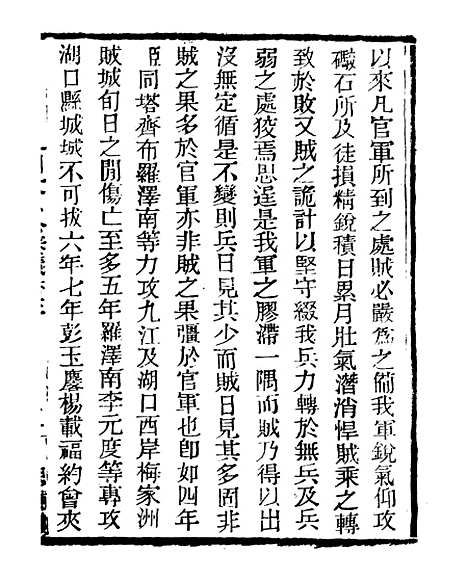 以來凡官軍所到之處賊必嚴爲之備我軍銳氣仰攻
礮石所及徒損精銳積日累月壯氣潛消悍賊乘之轉
致於敗又賊之詭計以堅守綴我兵力轉於無兵及兵
弱之處狡焉思逞是我軍之膠滯一隅而賊乃得以出
沒無定循是不變則兵日見其少而賊日見其多固非
賊之果多於官軍亦非賊之果彊於官軍也卽如四年
臣同塔齊布羅澤南等力攻九江及湖口西岸梅家洲
賊城旬日之閒傷亡至多五年羅澤南李元度等專攻
湖口縣城城不可拔六年七年彭玉麐楊載福約會夾